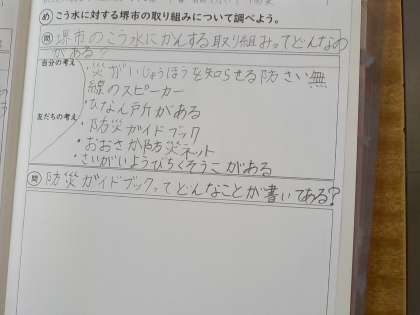 め こう水に対する堺市の取り組みについて調べよう。
問 堺市のこう水にかんする取り組みってどんなの
がある?
自分の考え
災がいじょうほうを知らせる防さい無
線のスピーカー
・ひなん所がある
友だちの考え
・防災ガイドブック
・おおさか防災ネット
・さいがいようびちくそうこがある
問 防災ガイドブックってどんなことが書いてある?